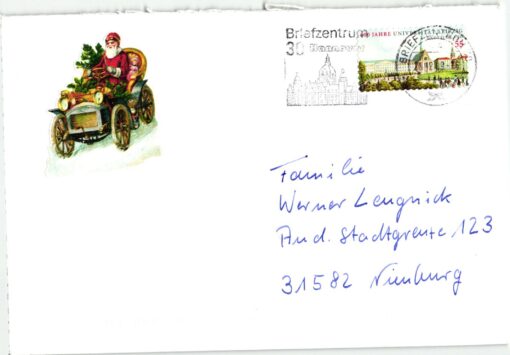 Briefzentrum
30
JAHRE UNIVERSITÄT LEIPZIG
55
BRIEFZ
Familie
Werner Lengnick
And. Stadtgrenze 123
31582 Nienburg